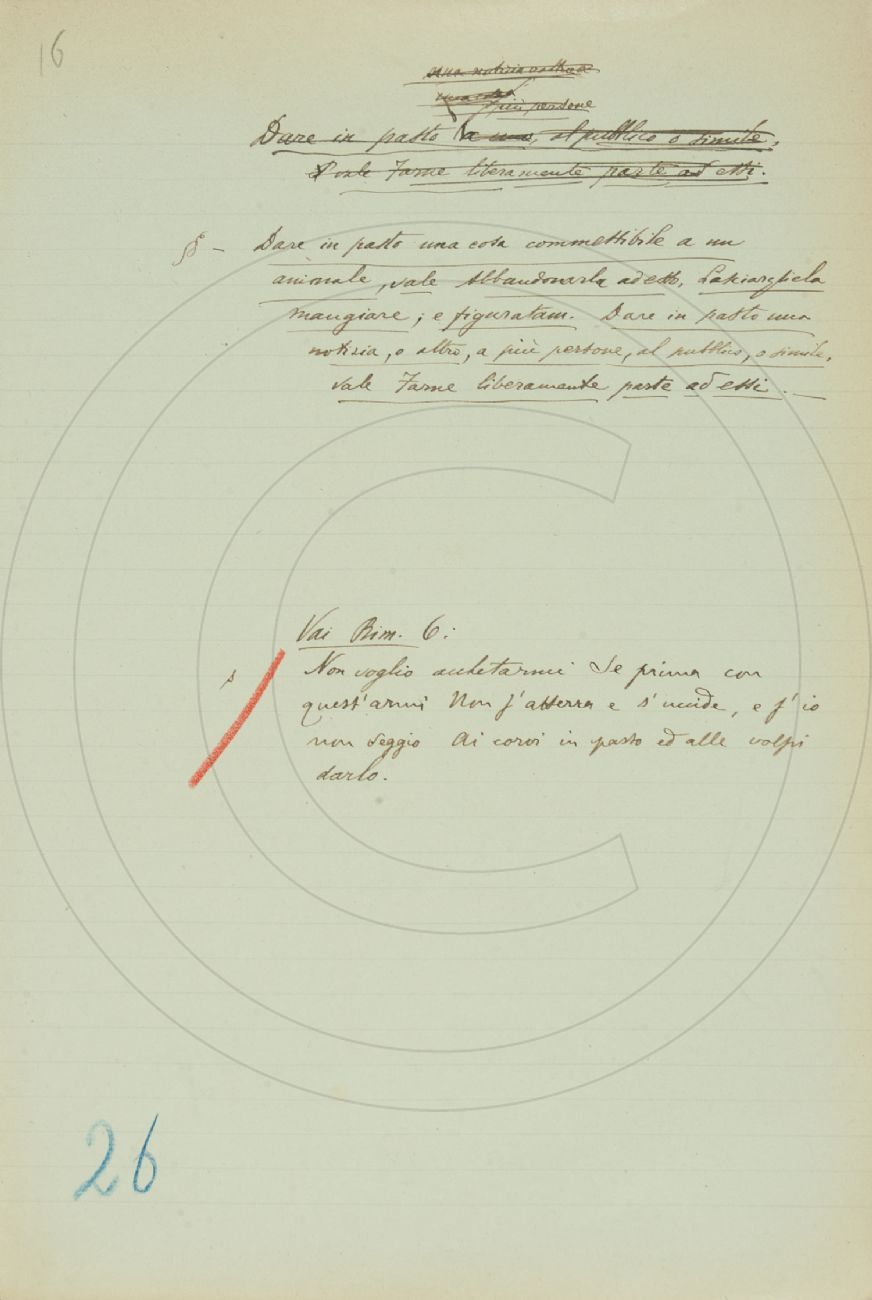 16
una notizia o altro a
più persone
Dare in pasto a uno, al pubblico o simile,
vale Farne liberamente parte ad essi.
§ - Dare in pasto una cosa commestibile a un
animale, vale Abbandonarla ad esso, Lasciargliela
mangiare; e figuratam. Dare in pasto una
notizia, o altro, a più persone, al pubblico, o simile,
vale Farne liberamente parte ad essi. —
Vai Rim. 6:
Non voglio acchetarmi Se prima con
quest'armi Non s'atterra e s'uccide, e s'io
non deggio Ai corvi in pasto ed alle volpi
darlo.
26